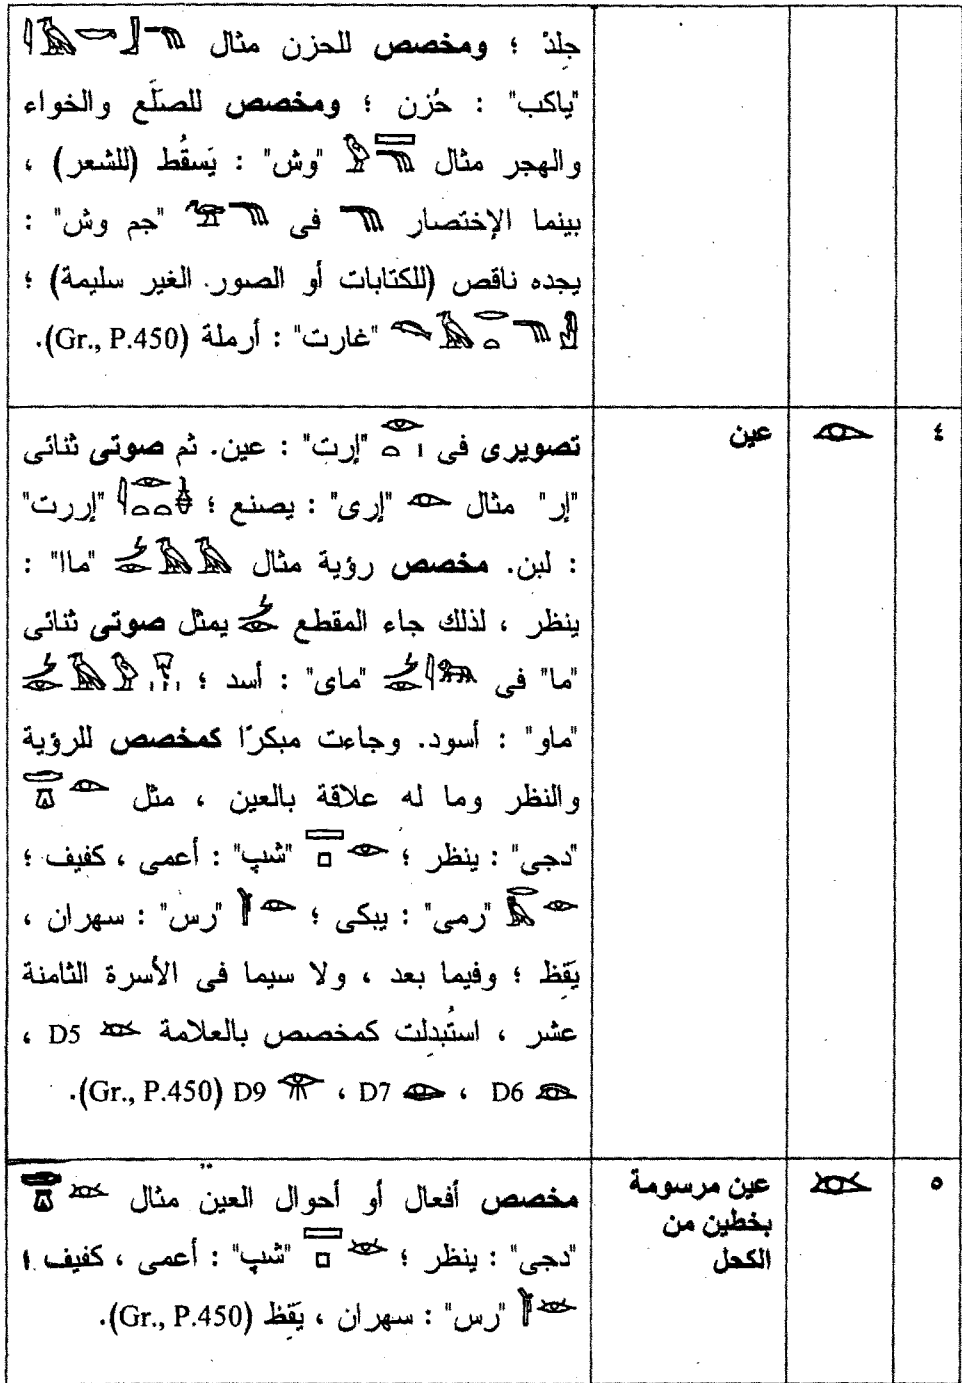 جلدْ ؛ ومخصص للحزن مثال 𓇋𓄿𓎡𓃀𓁸
"ياكب" : حُزن ؛ ومخصص للصلَع والخواء
والهجر مثال 𓅱𓈙𓁸 "وش" : يَسقُط (للشعر) ،
بينما الإختصار 𓁸 فى 𓅠𓁸 "جم وش" :
يجده ناقص (للكتابات أو الصور الغير سليمة) ؛
"غارت" : أرملة (Gr., P.450).
٤ 𓁹 عين
تصويرى فى 𓁹𓏏𓏤 "إرت" : عين. ثم صوتى ثنائى
"إر" مثال 𓁹 "إرى" : يصنع ؛ 𓇋𓁹𓏏𓏏𓏊 "إررت"
: لبن. مخصص رؤية مثال 𓌳𓁹𓄿𓄿 "ماا" :
ينظر ، لذلك جاء المقطع 𓌳𓁹 يمثل صوتى ثنائى
"ما" فى 𓌳𓁹𓇋𓃭 "ماى" : أسد ؛ 𓌳𓁹𓄿𓄿𓅱𓄛𓏥
"ماو" : أسود. وجاءت مبكرًا كمخصص للرؤية
والنظر وما له علاقة بالعين ، مثل 𓂧𓎼𓁹
"دجى" : ينظر ؛ 𓈙𓊪𓁹 "شپ" : أعمى ، كفيف ؛
𓂋𓅓𓁹 "رمى" : يبكى ؛ 𓌗𓁹 "رس" : سهران ،
يَقِظ ؛ وفيما بعد ، ولا سيما فى الأسرة الثامنة
عشر ، استُبدِلت كمخصص بالعلامة 𓁺 D5 ،
𓁻 D6 ، 𓁼 D7 ، 𓁿 D9 (Gr., P.450).
٥ 𓁺 عين مرسومة
بخطين من
الكحل
مخصص أفعال أو أحوال العين مثال 𓂧𓎼𓁺
"دجى" : ينظر ؛ 𓈙𓊪𓁺 "شپ" : أعمى ، كفيف ؛
𓌗𓁺 "رس" : سهران ، يَقِظ (Gr., P.450).